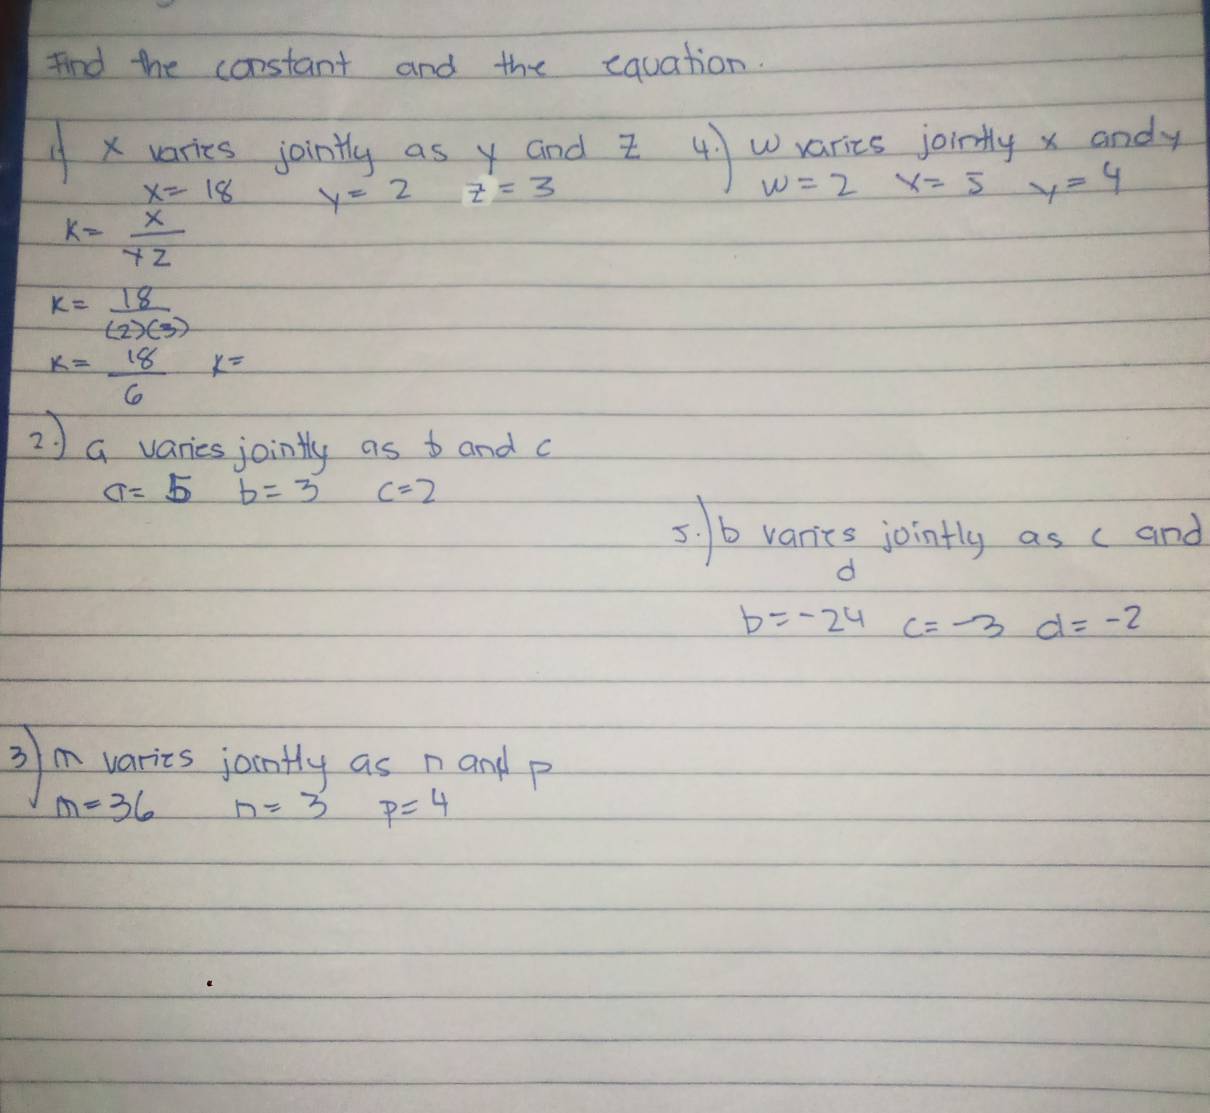 Find the constant and the equation.
1) x varies jointly as y and z
x = 18 y = 2 z = 3
K = x
yz
K = 18
(2)(3)
K = 18 K =
6
2.) a varies jointly as b and c
a = 5 b = 3 c = 2
3) m varies jointly as n and p
m = 36 n = 3 p = 4
4.) w varies jointly x and y
w = 2 x = 5 y = 4
5.) b varies jointly as c and
d
b = -24 c = -3 d = -2